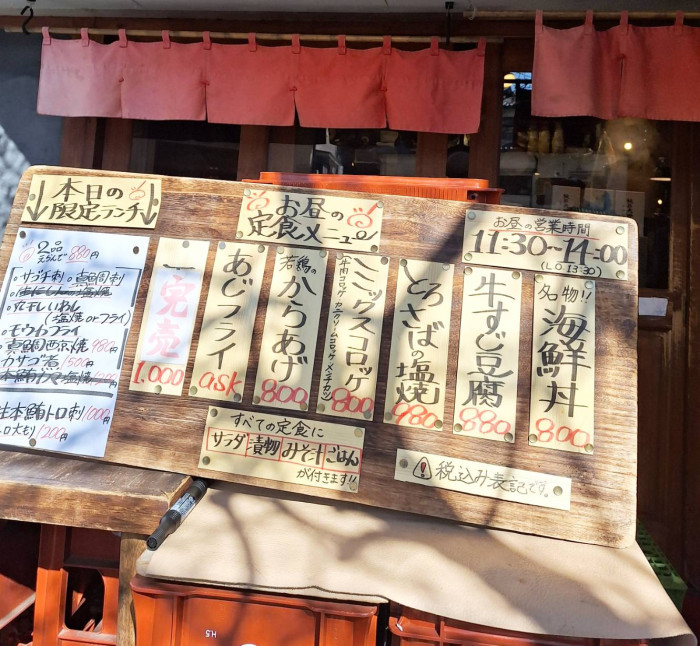 本日の
限定ランチ
2品
えらんで880円
サゴチ刺 真鯛刺
丸干しいわし
塩焼 orフライ)
モウカフライ
真鯛西京焼 980円
カサゴ煮 1500円
生本鮪トロ刺 1000円
トロ大もり 1200円
お昼の
定食メニュー
お昼の営業時間
11:30〜14:00
(L.O.13:30)
完売
1.000
あじフライ
ask
若鶏の
からあげ
800
ミックスコロッケ
(牛肉コロッケ カニクリームコロッケ メンチカツ)
800
とろさばの塩焼
980
牛すじ豆腐
880
名物!!
海鮮丼
800
すべての定食に
サラダ 漬物 みそ汁 ごはん
が付きます!!
税込み表記です。
H.5